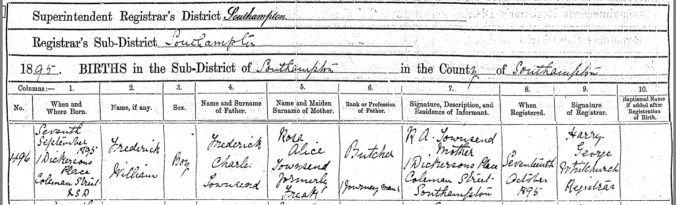 Superintendent Registrar's District Southampton
Registrar's Sub-District Southampton
1895. BIRTHS in the Sub-District of Southampton in the County of Southampton
Columns:— 1. 2. 3. 4. 5. 6. 7. 8. 9. 10.
No. When and Where Born. Name, if any. Sex. Name and Surname of Father. Name and Maiden Surname of Mother. Rank or Profession of Father. Signature, Description, and Residence of Informant. When Registered. Signature of Registrar. Baptismal Name if added after Registration of Birth.
496 Seventh September 1895 1 Dickersons Place Coleman Street R.S.D Frederick William Boy Frederick Charles Townsend Rosa Alice Townsend formerly Butcher (Journeyman) R A. Townsend Mother 1 Dickersons Place Coleman Street Southampton Seventeenth October 1895 Harry George Whitchurch Registrar